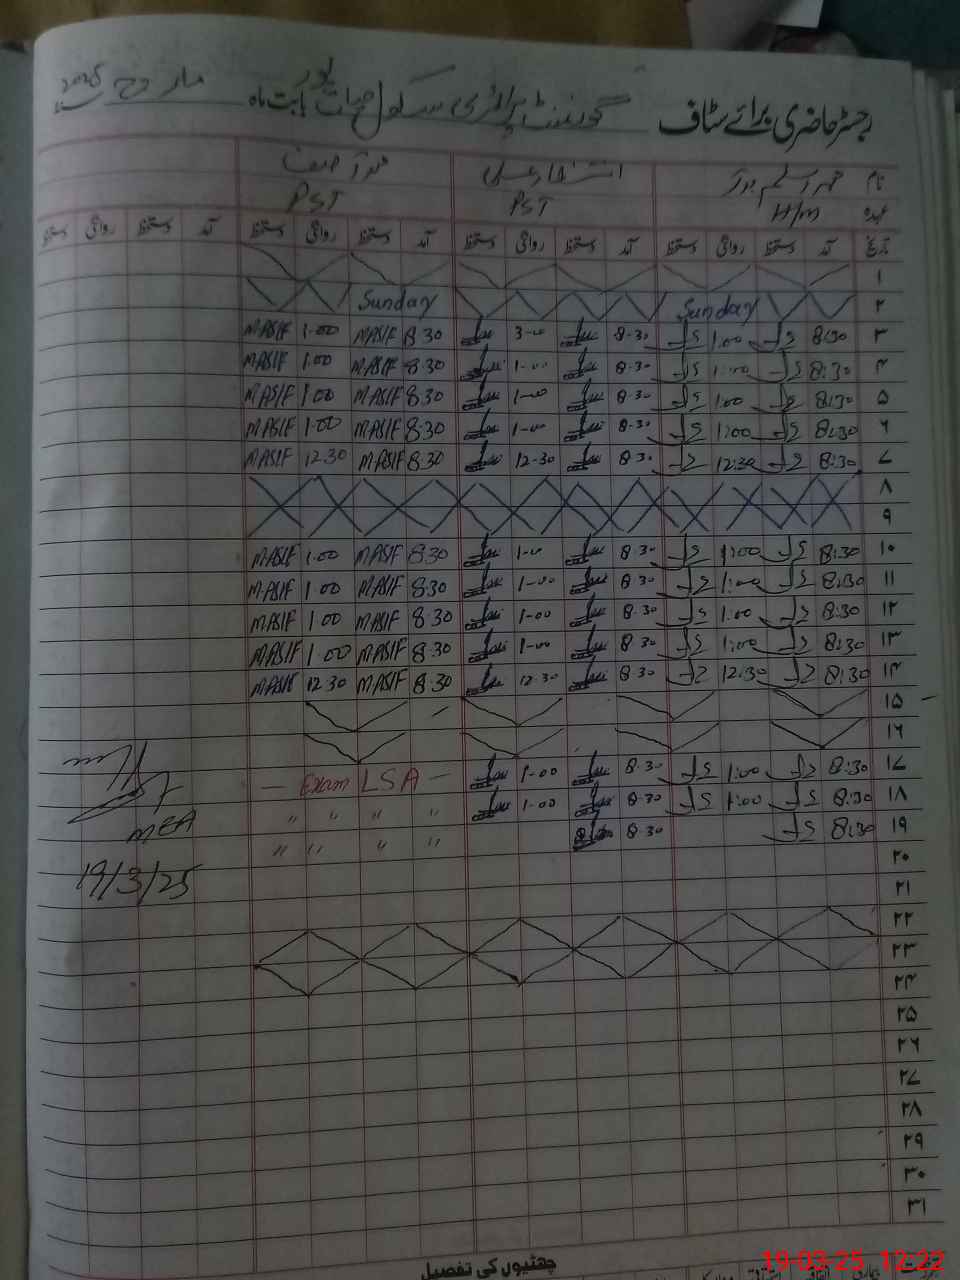 رجسٹر حاضری برائے سٹاف گورنمنٹ پرائمری سکول حیات پور بابت ماہ مارچ 2025
نام
PST PST H/M عہدہ
تاریخ آمد دستخط روانگی دستخط آمد دستخط روانگی دستخط آمد دستخط روانگی دستخط آمد دستخط روانگی دستخط
۱
۲ Sunday Sunday
۳ 8:30 1.00 8.30 3-00 8.30 MASIF 1.00 MASIF
۴ 8:30 1:00 8.30 1-00 8.30 MASIF 1.00 MASIF
۵ 8:30 1.00 8.30 1-00 8.30 MASIF 1.00 MASIF
۶ 8:30 1:00 8.30 1-00 8.30 MASIF 1.00 MASIF
۷ 8:30 12:30 8.30 12-30 8.30 MASIF 12.30 MASIF
۸
۹
۱۰ 8:30 1:00 8.30 1-00 8.30 MASIF 1.00 MASIF
۱۱ 8:30 1:00 8.30 1-00 8.30 MASIF 1.00 MASIF
۱۲ 8:30 1:00 8.30 1-00 8.30 MASIF 1.00 MASIF
۱۳ 8:30 1:00 8.30 1-00 8.30 MASIF 1.00 MASIF
۱۴ 8:30 12:30 8.30 12.30 8.30 MASIF 12.30 MASIF
۱۵
۱۶
۱۷ 8:30 1:00 8.30 1-00 — Exam LSA —
۱۸ 8:30 1:00 8.30 1-00 " " " "
MEA
۱۹ 8:30 8.30 " " " "
19/3/25
۲۰
۲۱
۲۲
۲۳
۲۴
۲۵
۲۶
۲۷
۲۸
۲۹
۳۰
۳۱
چھٹیوں کی تفصیل
19-03-25 12:22